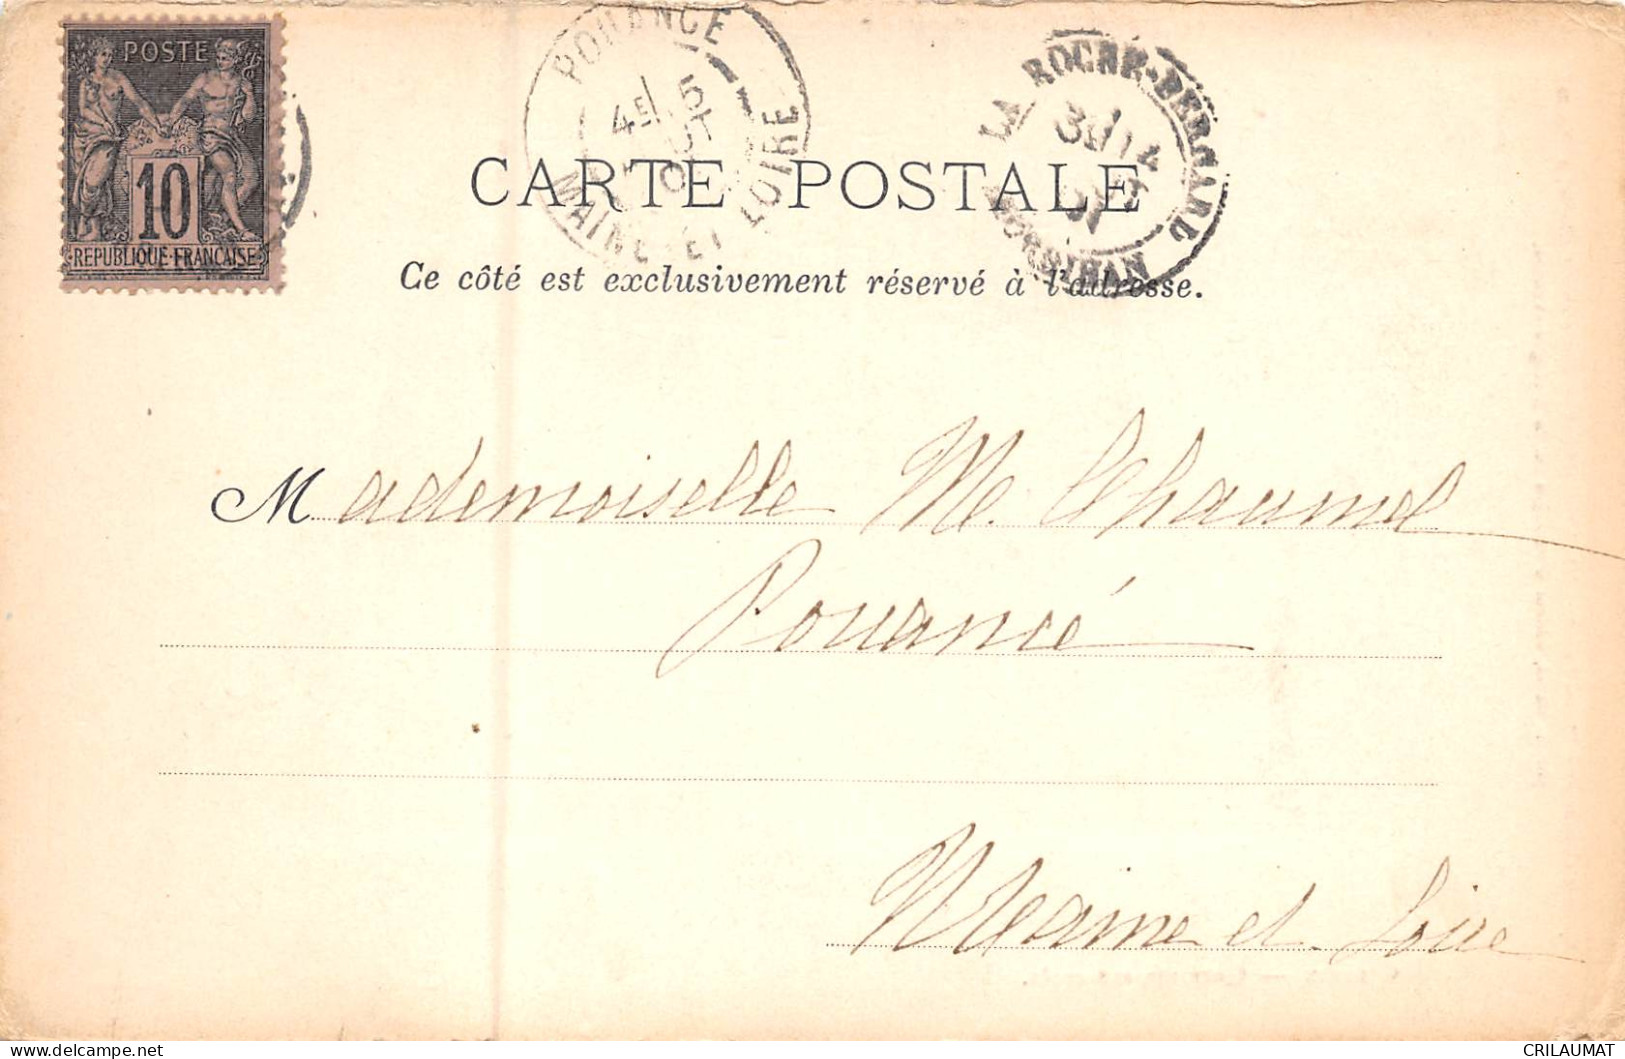 POSTE
10
REPUBLIQUE FRANÇAISE
POUANCE
4E 5
MAINE-ET-LOIRE
LA ROCHE-BERNARD
MORBIHAN
CARTE POSTALE
Ce côté est exclusivement réservé à l'adresse.
Mademoiselle M. Chaumel
Pouancé
Maine et Loire
CRILAUMAT